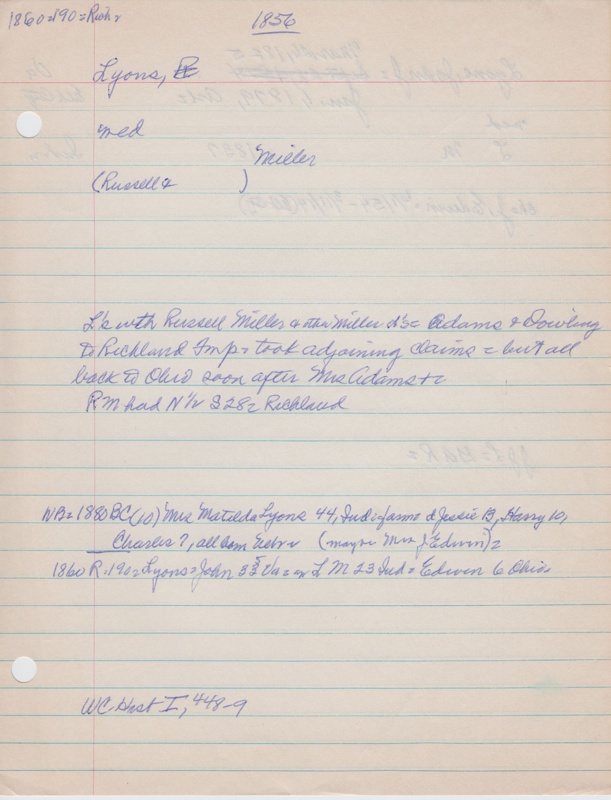 1860=190=Rich
1856
Lyons,
med
Miller
(Russell & )
L's with Russell Miller & other Miller d's = Adams & Dowling
to Richland Twp = took adjoining claims = but all
back to Ohio soon after Mrs Adams
RM had N½ S28= Richland
NB= 1880 BC (10) Mrs Matilda Lyons 44, Ind = farms d Jessie 13, Harry 10,
Charles 7, all born (maybe Mrs J Edwin)=
1860 R. 190= Lyons= John 33 Va = L M 23 Ind = Edwin 6 Ohio
WC Hist I, 448-9